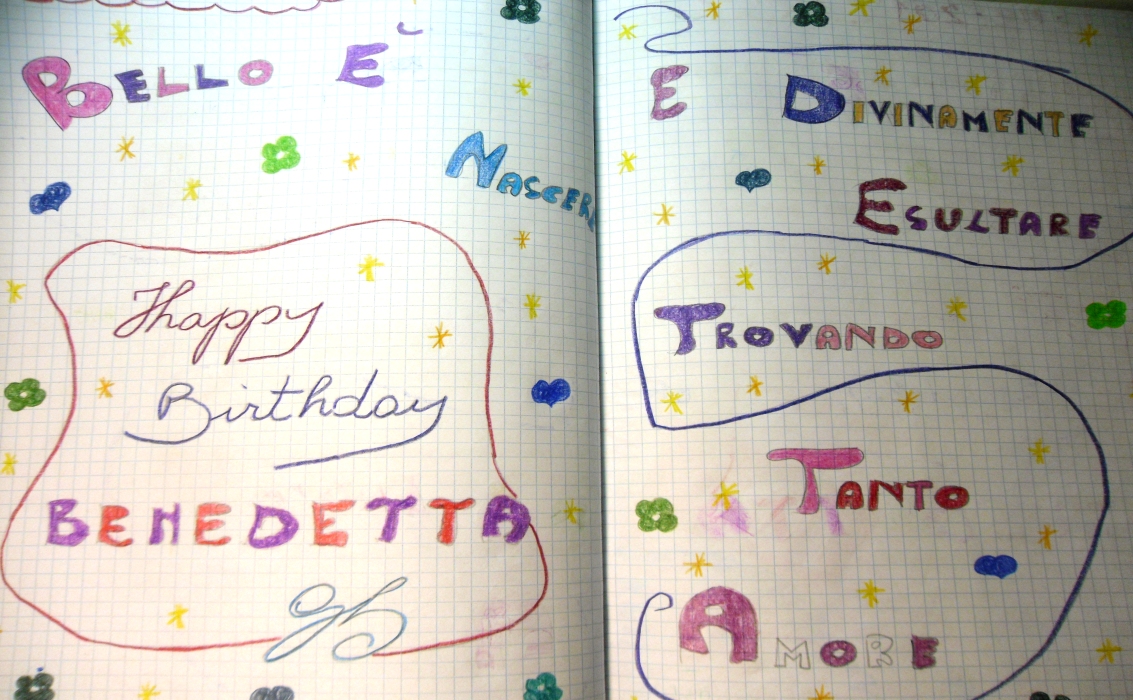 BELLO È
NASCERE
Happy
Birthday
BENEDETTA
E DIVINAMENTE
ESULTARE
TROVANDO
TANTO
AMORE